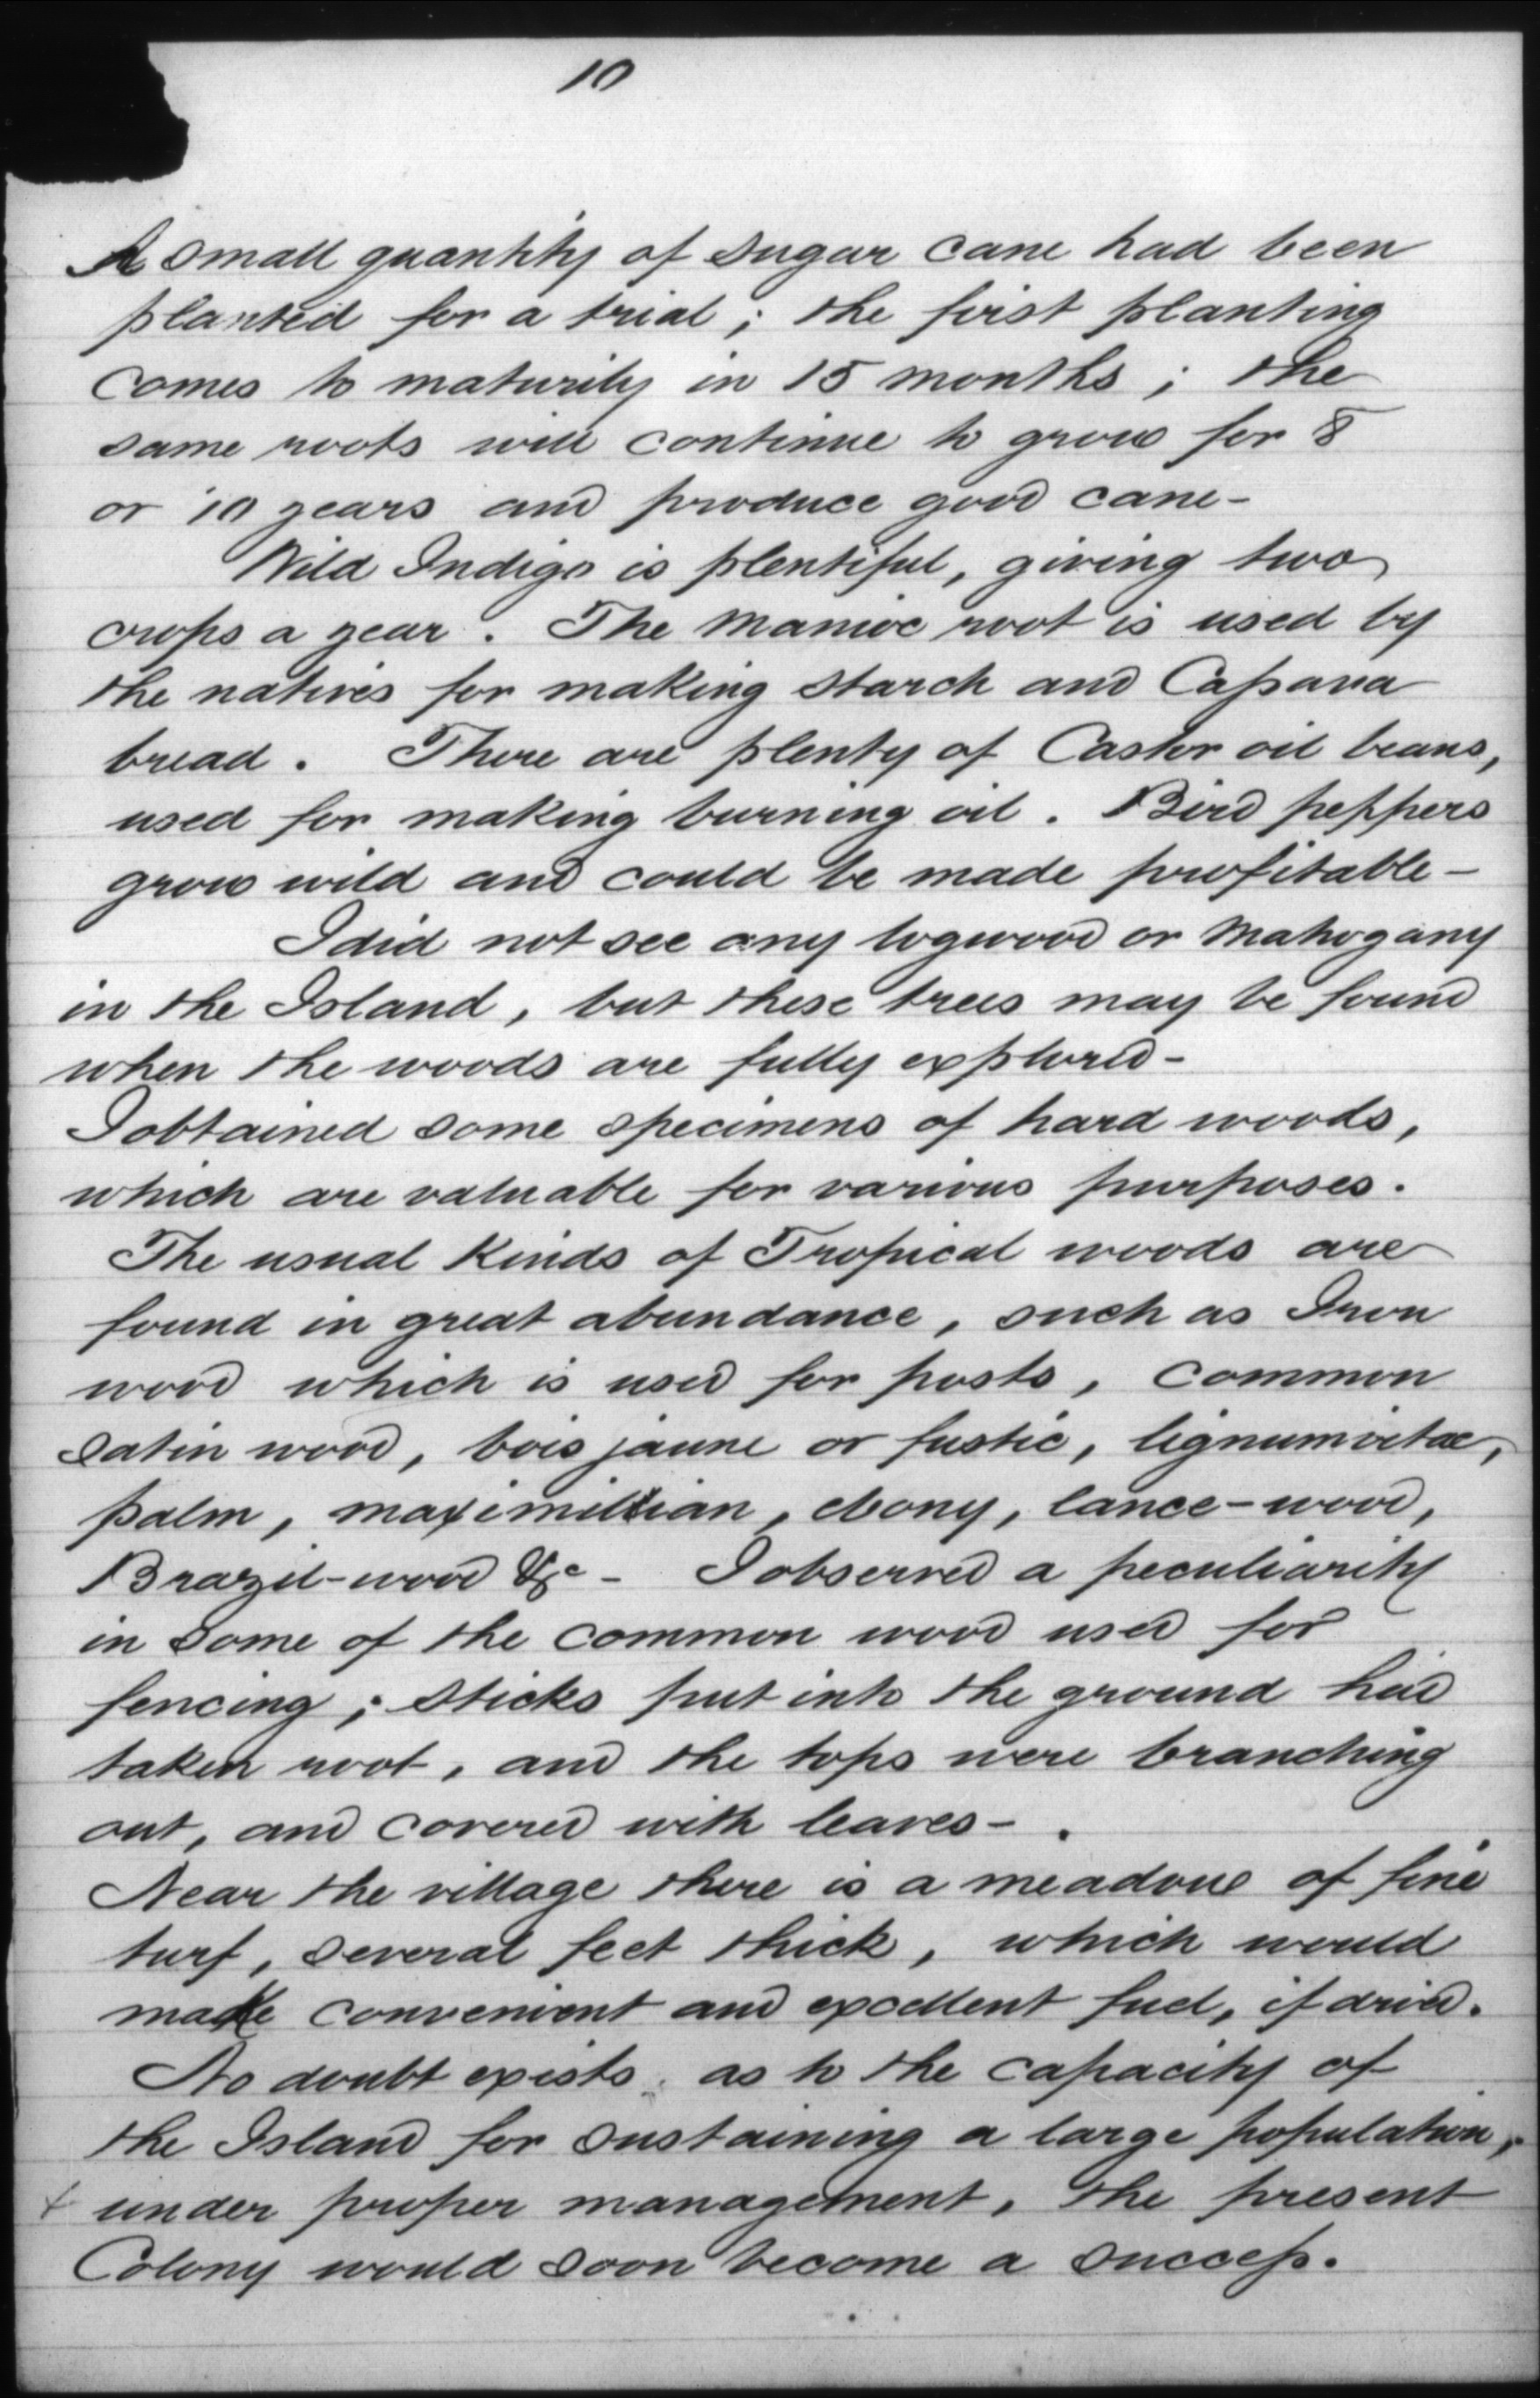 10
A small quantity of sugar cane had been
planted for a trial; the first planting
comes to maturity in 15 months; the
same roots will continue to grow for 8
or 10 years and produce good cane-
Wild Indigo is plentiful, giving two
crops a year. The Manioc root is used by
the natives for making starch and Cassava
bread. There are plenty of Castor oil beans,
used for making burning oil. Bird peppers
grow wild and could be made profitable-
I did not see any logwood or Mahogany
in the Island, but these trees may be found
when the woods are fully explored-
I obtained some specimens of hard woods,
which are valuable for various purposes.
The usual Kinds of Tropical woods are
found in great abundance, such as Iron
wood which is used for posts, common
satin wood, bois jaune or fustic, lignumvitae,
palm, maximillian, ebony, lance-wood,
Brazil-wood &c- I observed a peculiarity
in some of the common wood used for
fencing; sticks put into the ground had
taken root, and the tops were branching
out, and covered with leaves-.
Near the village there is a meadow of fine
turf, several feet thick, which would
make convenient and excellent fuel, if dried.
No doubt exists as to the capacity of
the Island for sustaining a large population,
+ under proper management, the present
Colony would soon become a success.